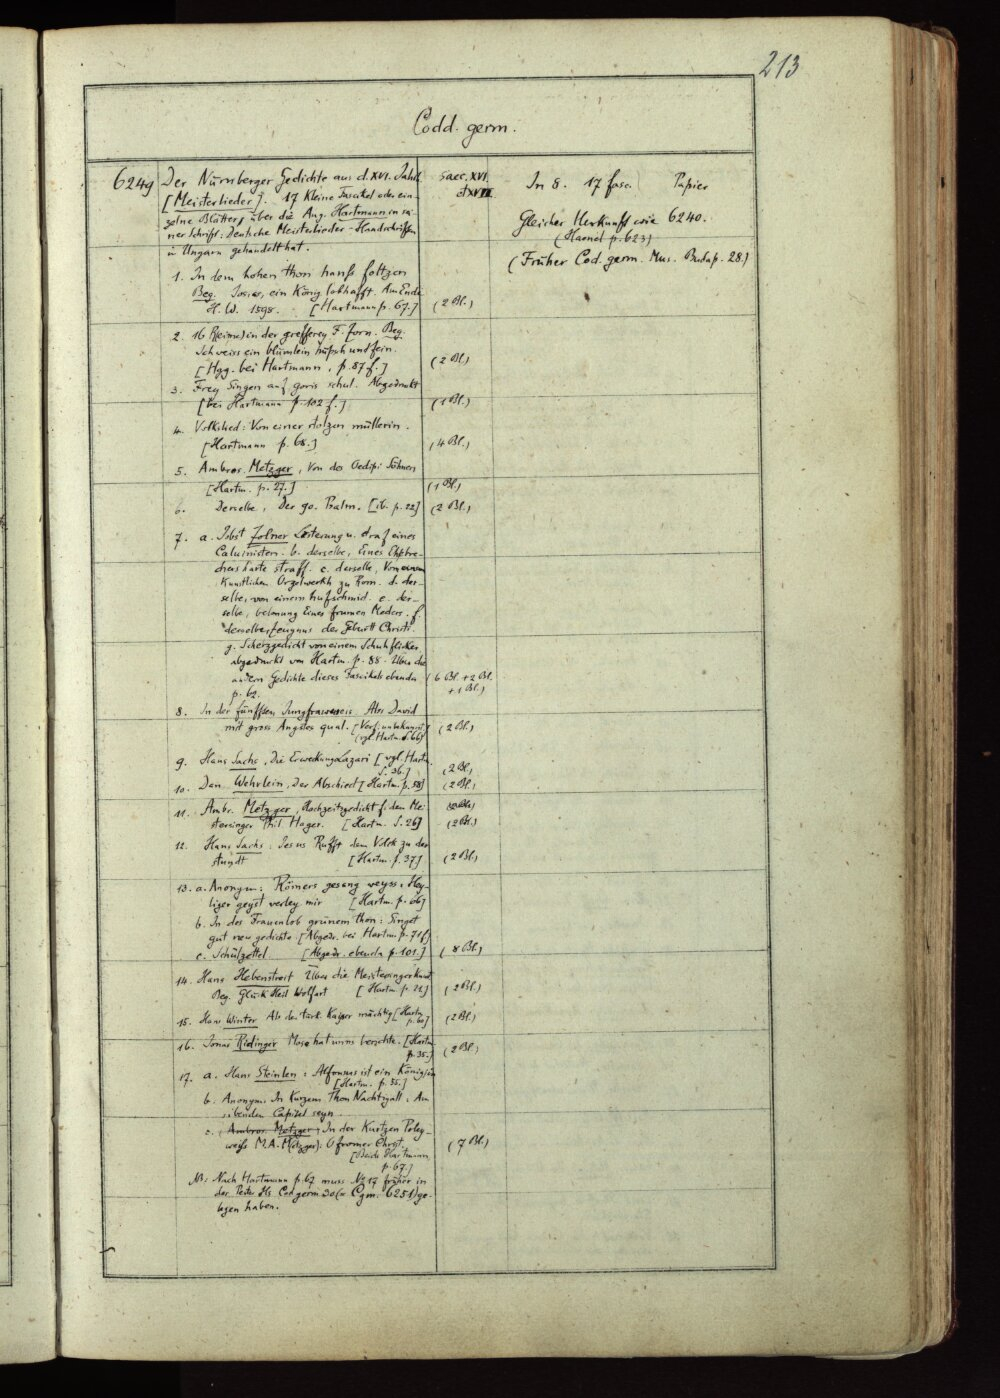 213
Codd. germ.
6249 Der Nürnberger Gedichte aus d. XVI. Jahrh.
[Meisterlieder]. 17 kleine Faszikel oder ein-
zelne Blätter, über die Aug. Hartmann in sei-
ner Schrift: Deutsche Meisterlieder-Handschriften
in Ungarn gehandelt hat.
Saec. XVI.
et XVII
In 8. 17 fasc. Papier
Gleicher Herkunft wie 6240.
(Haenel p. 623)
(Früher Cod. germ. Mus. Budap. 28.)
1. In dem hohen thon hanß foltzen
Beg. Josias, ein König lobhafft. Am Ende
H. W. 1598. [Hartmann p. 67.] (2 Bl.)
2. 16 Reime in der grefferey F. Zorn. Beg.
Ich weiss ein blümlein hüpsch und fein.
[Hgg. bei Hartmann, p. 87 f.] (2 Bl.)
3. Frey Singen auf goris schul. Abgedruckt
[bei Hartmann p. 102 f.] (1 Bl.)
4. Volkslied: Von einer stolzen müllerin.
[Hartmann p. 68.] (4 Bl.)
5. Ambros. Metzger, Von des Oedipi Söhnen
[Hartm. p. 27.] (1 Bl.)
6. Derselbe, Der 90. Psalm. [ib. p. 22] (2 Bl.)
7. a. Jobst Zolner Lesterung u. straf eines
Calvinisten. b. derselbe, Eines Ehebre-
chers harte straff. c. derselbe, Von einem
künstlichen Orgelwerkh zu Rom. d. der-
selbe, von einem hufschmid. e. der-
selbe, belonung Eines frumen Meders. f.
derselbe, Zeugnus der Geburtt Christi.
g. Scherzgedicht von einem Schuhflicker
abgedruckt von Hartm. p. 88. Über die
andern Gedichte dieses Faszikels ebenda
p. 62. (6 Bl. + 2 Bl.
+ 1 Bl.)
8. In der fünfften Jungfrauweis. Als David
mit gross Angstes qual. [Verf. unbekannt,
(vgl. Hartm. S. 66)] (2 Bl.)
9. Hans Sachs, Die Erweckung Lazari [vgl. Hartm.
S. 36.] (2 Bl.)
10. Dan. Wehrlein, Der Abschied [Hartm. p. 58] (2 Bl.)
11. Ambr. Metzger, Hochzeitgedicht f. den Mei-
stersinger Phil Hager. [Hartm. S. 26] (2 Bl.)
12. Hans Sachs: Jesus Rufft dem Volck zu der
stundt [Hartm. p. 37] (2 Bl.)
13. a. Anonym: Römers gesang weyss: Hey-
liger geyst verley mir [Hartm. p. 66]
b. In des Frauenlob grünem thon: Singet
gut new gedichte [Abgedr. bei Hartm. p. 71 f]
c. Schulzettel. [Abgedr. ebenda p. 101.] (8 Bl.)
14. Hans Hebenstreit Über die Meistersingerkunst
Beg. Glück Heil Wolfart [Hartm. p. 21] (2 Bl.)
15. Hans Winter Als der türk. Kayser mächtig [Hartm.
p. 60] (2 Bl.)
16. Jonas Ridinger Mose hat unns berichte. [Hartm.
p. 35.] (2 Bl.)
17. a. Hans Steinlen: Alfonnus ist ein König
[Hartm. p. 55.]
b. Anonym. In kurzem Thon Nachtigall: Am
sibenden Capitel seyn.
c. Ambros. Metzger, In der kurtzen Poley-
weiß M. A. M(etzger). O fromer Christ.
[Beide Hartmann
p. 67.] (7 Bl.)
NB: Nach Hartmann p. 67 muss No 17 früher in
der Pester Hs Cod germ 30 (= Cgm. 6251) ge-
legen haben.